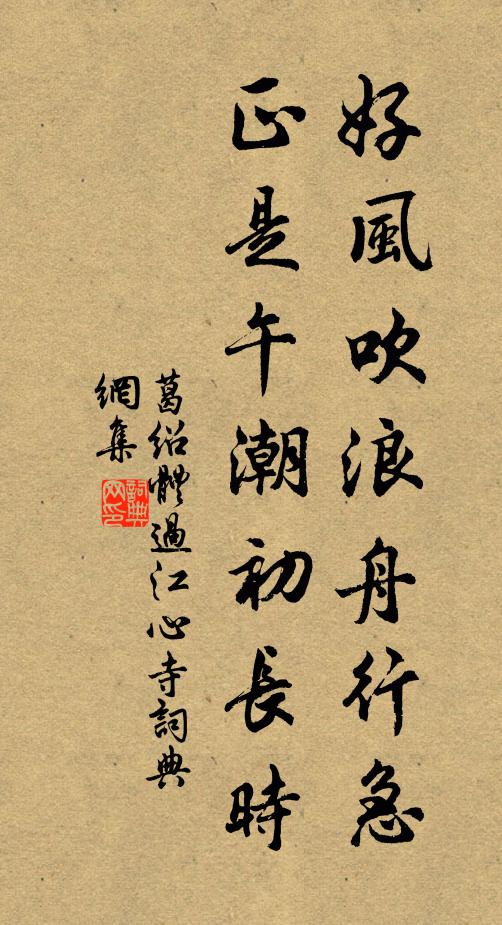 好風吹浪舟行急
正是午潮初長時
葛紹體過江心寺詞典
網集
詞典
网印